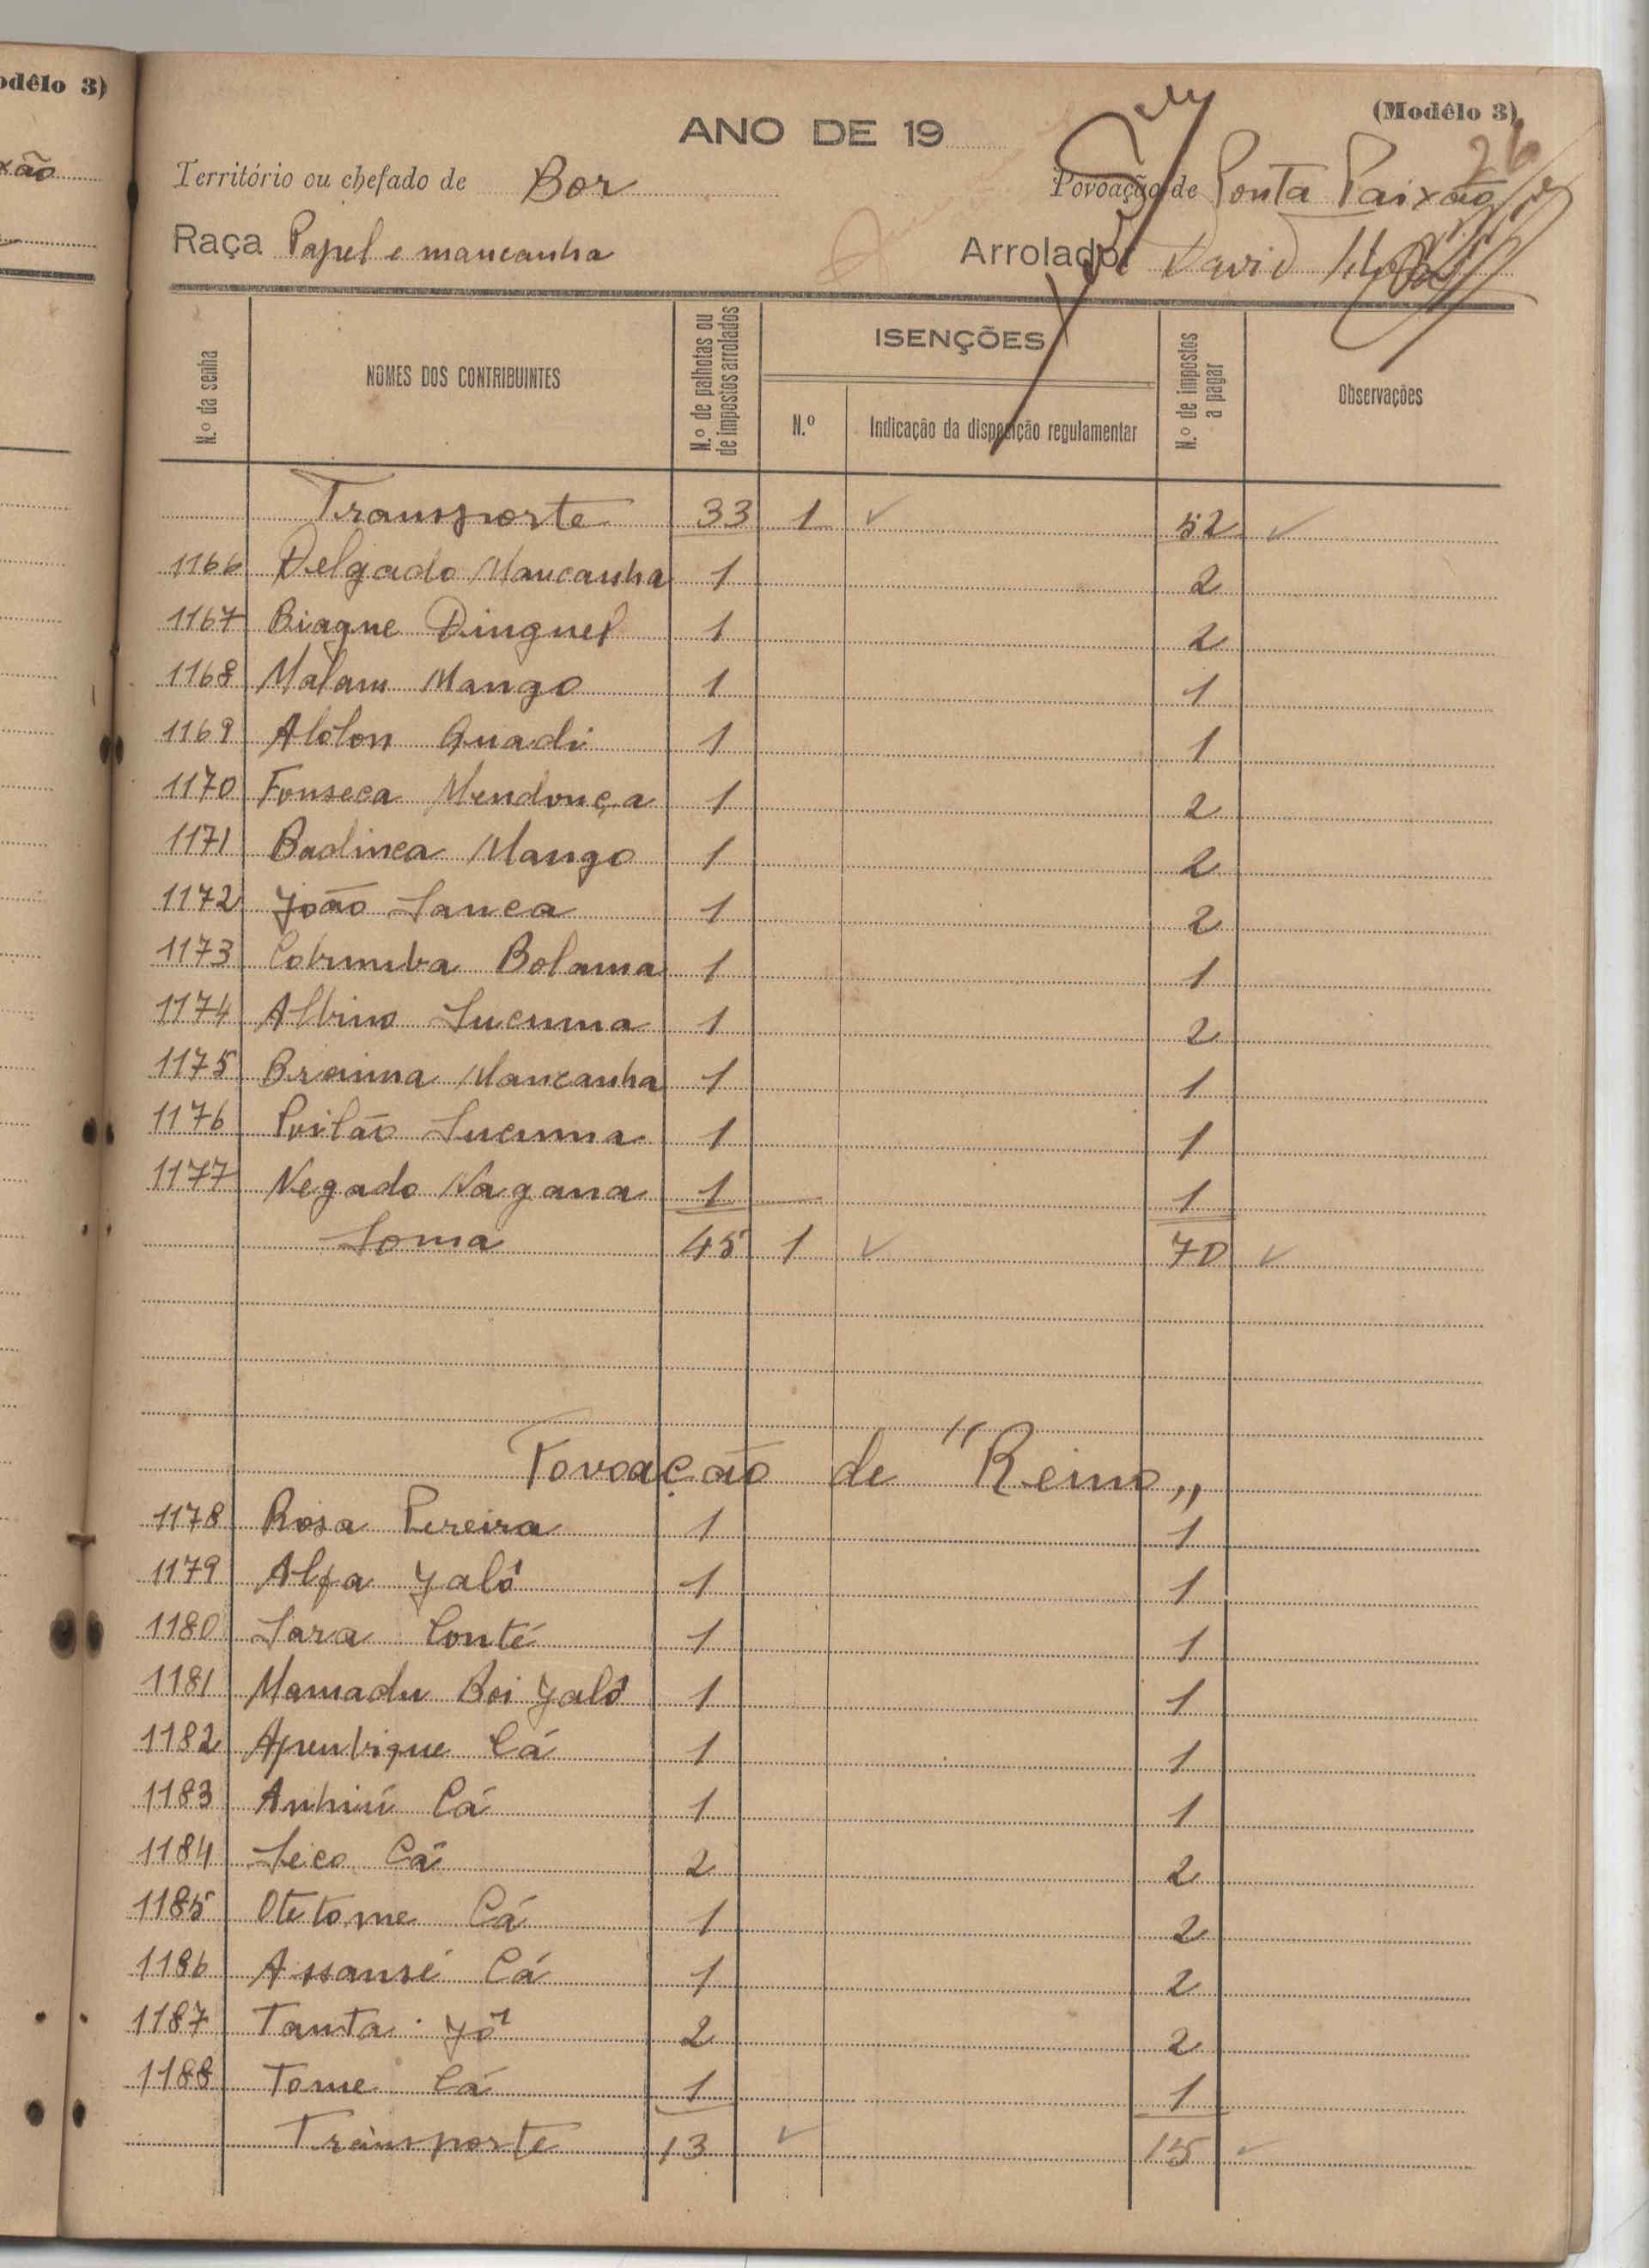 odêlo 3)
xão
(Modêlo 3)
26
ANO DE 19
Território ou chefado de Bor Povoação de Ponta Paixão
Raça Papel e mancanha Arrolador David
N.º da senha NOMES DOS CONTRIBUINTES N.º de palhotas ou de impostos arrolados ISENÇÕES N.º de impostos a pagar Observações
N.º Indicação da disposição regulamentar
Transporte 33 1 ✓ 52 ✓
1166 Delgado Mancanha 1 2
1167 Biague Dinguel 1 2
1168 Malam Mango 1 1
1169 Alolon Quadi 1 1
1170 Fonseca Mendonça 1 2
1171 Badinca Mango 1 2
1172 João Sanca 1 2
1173 Columba Bolama 1 1
1174 Albino Sucuma 1 2
1175 Braima Mancanha 1 1
1176 Poilão Sucuma 1 1
1177 Negado Nagana 1 1
Soma 45 1 ✓ 70 ✓
Povoação de "Reino„
1178 Rosa Pereira 1 1
1179 Alfa Jaló 1 1
1180 Sara Conté 1 1
1181 Mamadu Boi Jaló 1 1
1182 Apenbique Cá 1 1
1183 Anhiní Cá 1 1
1184 Seco Cá 2 2
1185 Otetome Cá 1 2
1186 Assansé Cá 1 2
1187 Tanta Jó 2 2
1188 Tome Cá 1 1
Transporte 13 ✓ 15 ✓